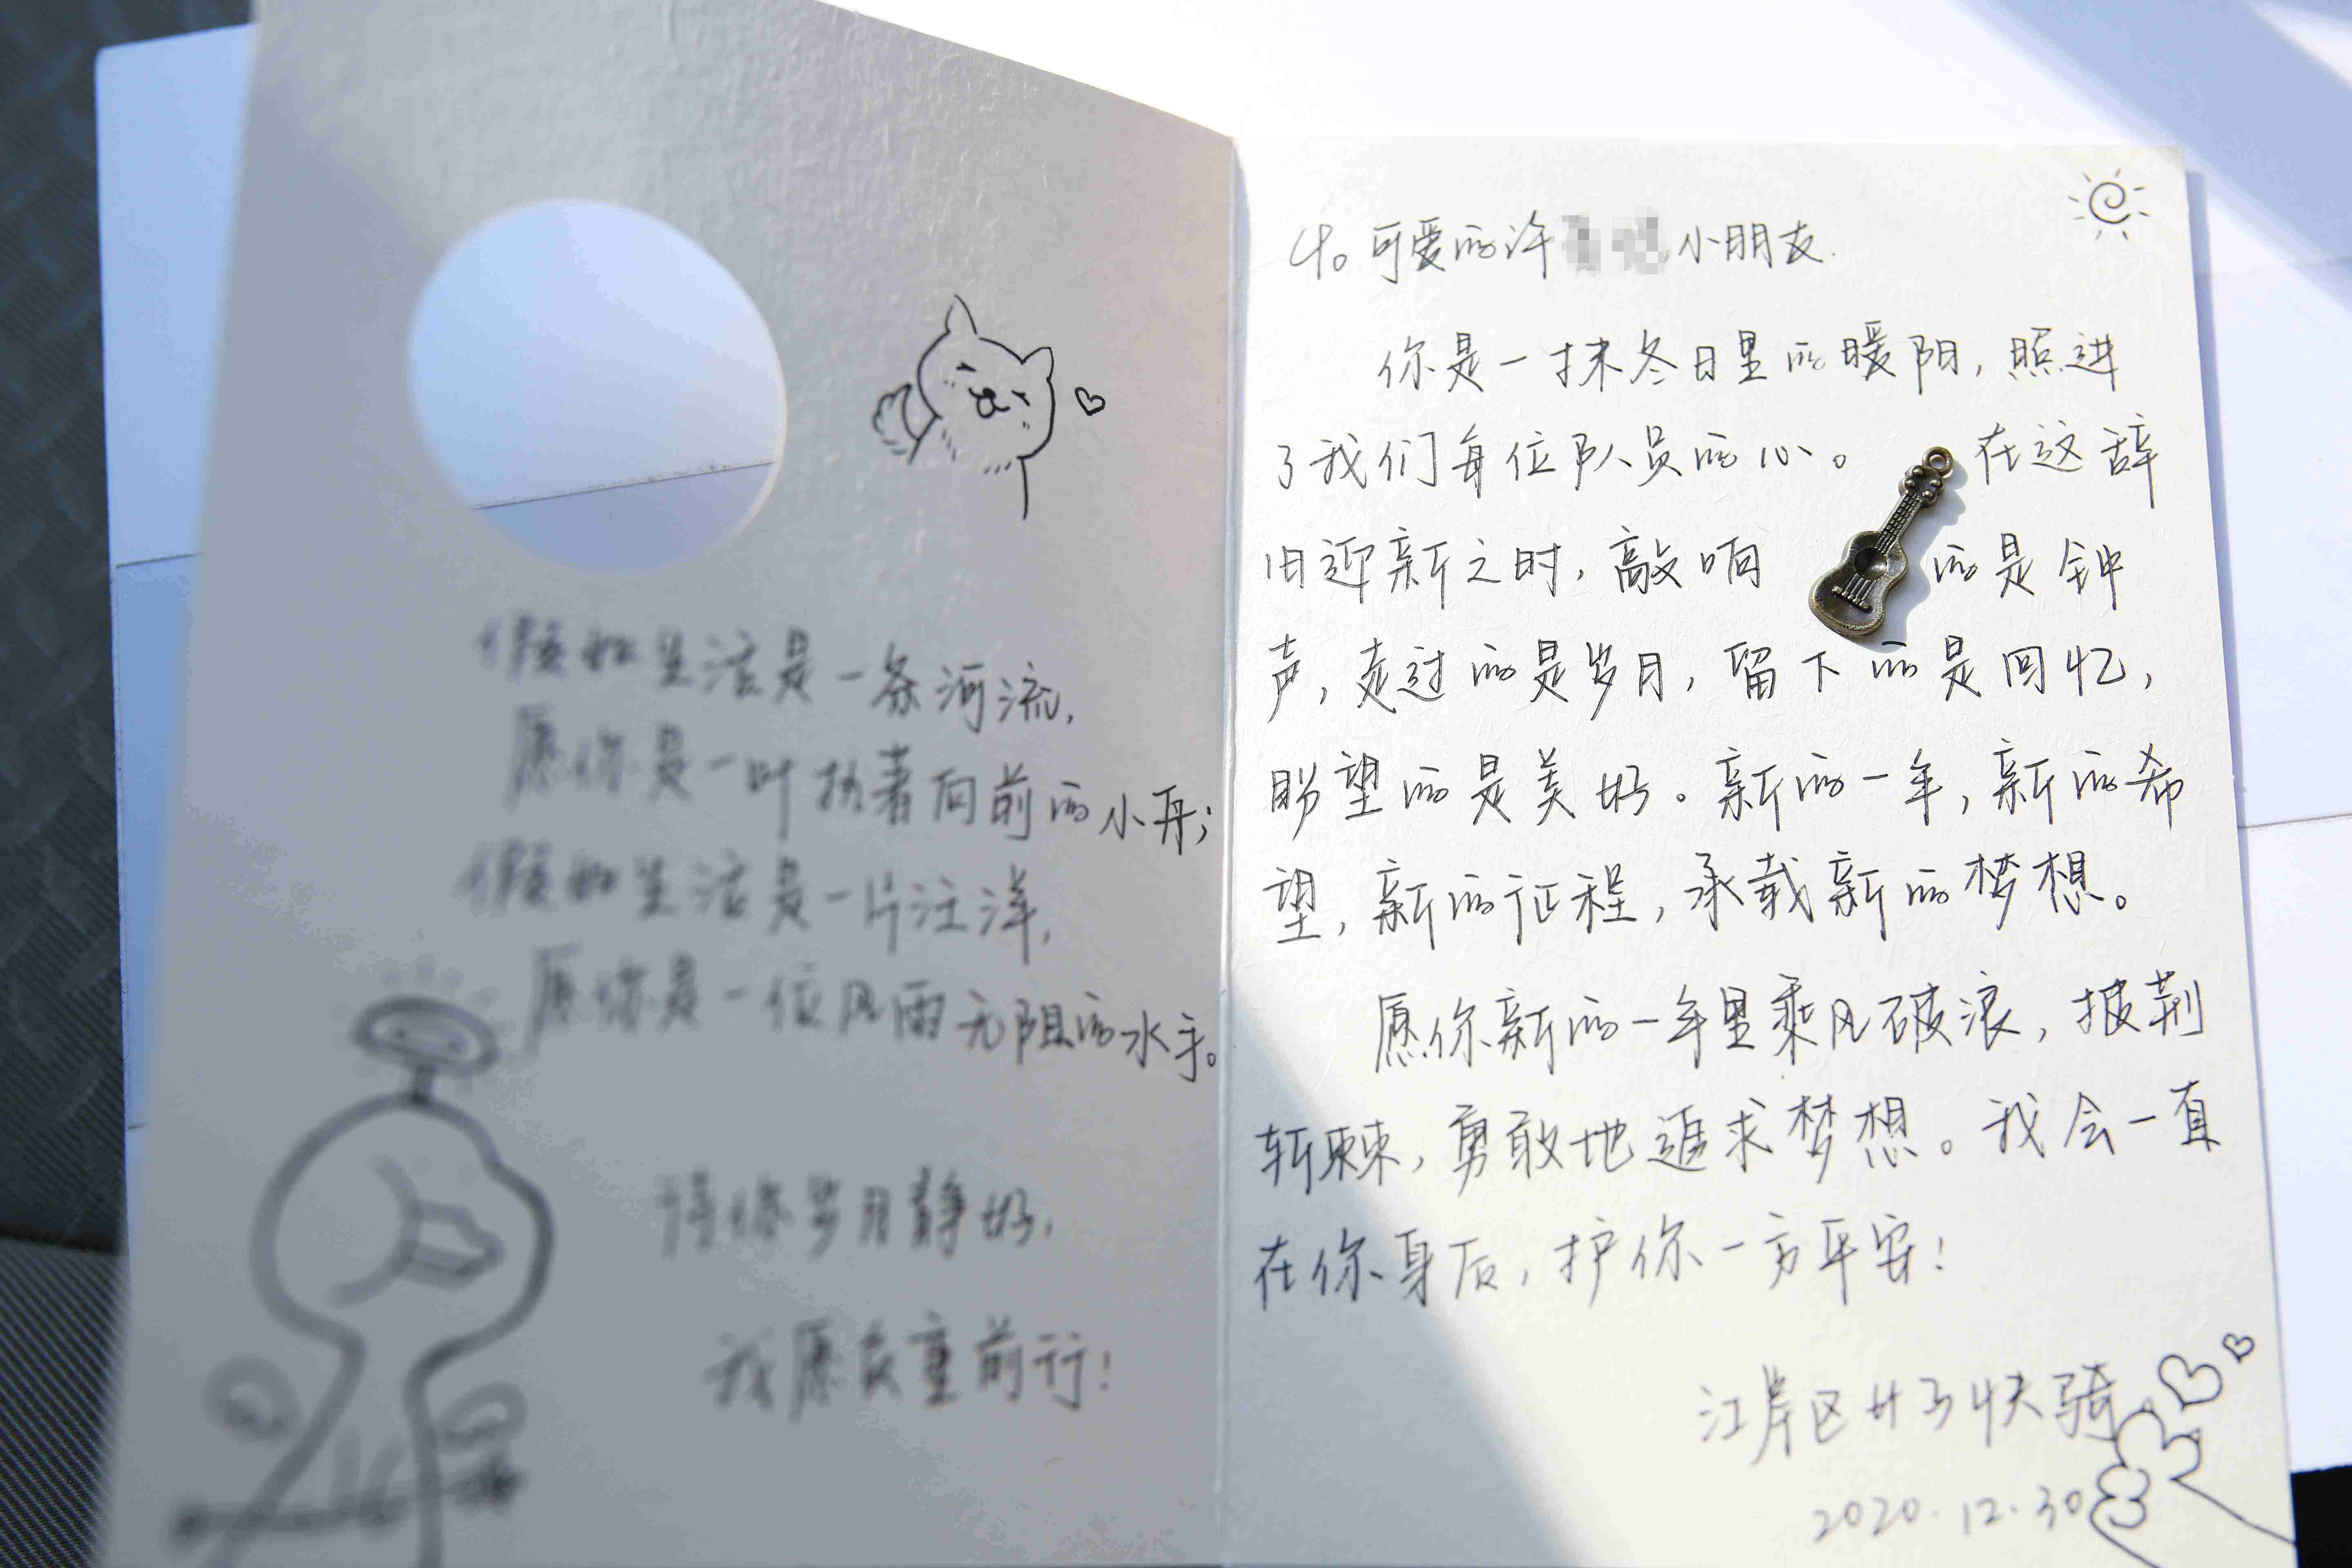 假如生活是一条河流,
愿你是一叶执着向前的小舟;
假如生活是一片汪洋,
愿你是一位风雨无阻的水手。
待你岁月静好,
我愿负重前行!
可爱的许 小朋友.
你是一抹冬日里的暖阳,照进
了我们每位队员的心。在这辞
旧迎新之时,敲响的是钟
声,走过的是岁月,留下的是回忆,
盼望的是美好。新的一年,新的希
望,新的征程,承载新的梦想。
愿你新的一年里乘风破浪,披荆
斩棘,勇敢地追求梦想。我会一直
在你身后,护你一方平安!
江岸区女子快骑
2020.12.30